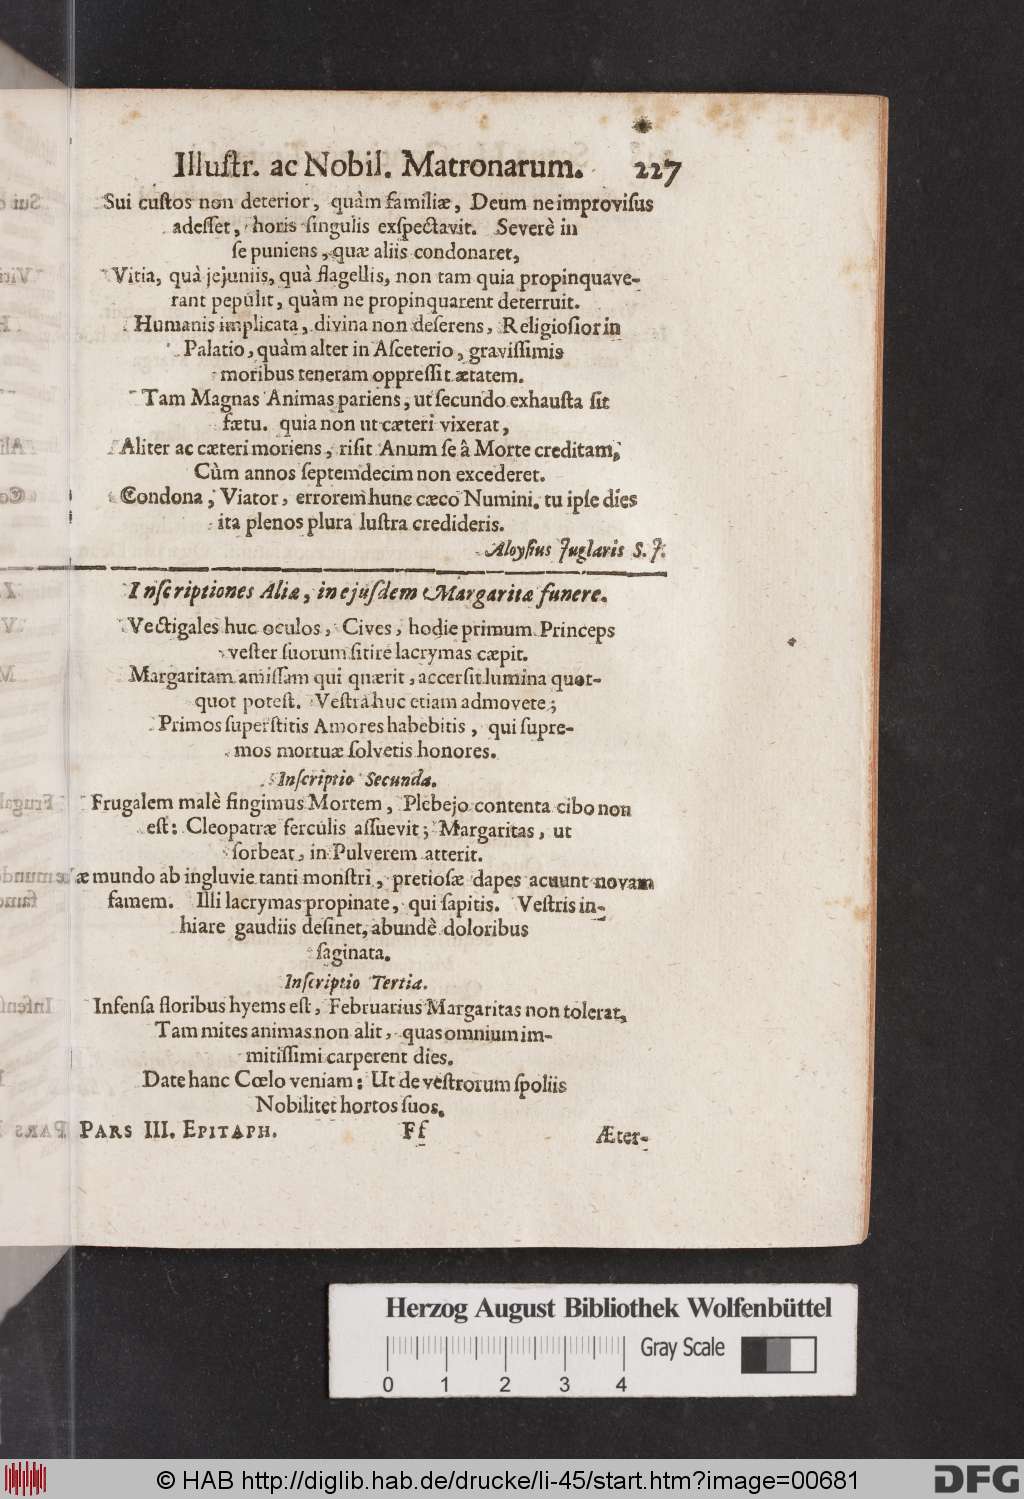 Illustr. ac Nobil. Matronarum. 227
Sui custos non deterior, quàm familiæ, Deum ne improvisus
adesset, horis singulis exspectavit. Severè in
se puniens, quæ aliis condonaret,
Vitia, quà jejuniis, quà flagellis, non tam quia propinquave-
rant pepulit, quàm ne propinquarent deterruit.
Humanis implicata, divina non deserens, Religiosior in
Palatio, quàm alter in Asceterio, gravissimis
moribus teneram oppressit ætatem.
Tam Magnas Animas pariens, ut secundo exhausta sit
fætu. quia non ut cæteri vixerat,
Aliter ac cæteri moriens, risit Anum se â Morte creditam,
Cùm annos septemdecim non excederet.
Condona, Viator, errorem hunc cæco Numini. tu ipse dies
ita plenos plura lustra credideris.
Aloysius Juglaris S. J.
Inscriptiones Aliæ, in ejusdem Margaritæ funere.
Vectigales huc oculos, Cives, hodie primum Princeps
vester suorum sitire lacrymas cæpit.
Margaritam amissam qui quærit, accersit lumina quot-
quot potest. Vestra huc etiam admovete;
Primos superstitis Amores habebitis, qui supre-
mos mortuæ solvetis honores.
Inscriptio Secunda.
Frugalem malè fingimus Mortem, Plebejo contenta cibo non
est: Cleopatræ ferculis assuevit; Margaritas, ut
sorbeat, in Pulverem atterit.
æ mundo ab ingluvie tanti monstri, pretiosæ dapes acuunt novam
famem. Illi lacrymas propinate, qui sapitis. Vestris in-
hiare gaudiis desinet, abundè doloribus
saginata.
Inscriptio Tertia.
Infensa floribus hyems est, Februarius Margaritas non tolerat,
Tam mites animas non alit, quas omnium im-
mitissimi carperent dies.
Date hanc Cœlo veniam: Ut de vestrorum spoliis
Nobilitet hortos suos.
PARS III. EPITAPH. Ff Æter-
Herzog August Bibliothek Wolfenbüttel
Gray Scale
0 1 2 3 4
© HAB http://diglib.hab.de/drucke/li-45/start.htm?image=00681
DFG